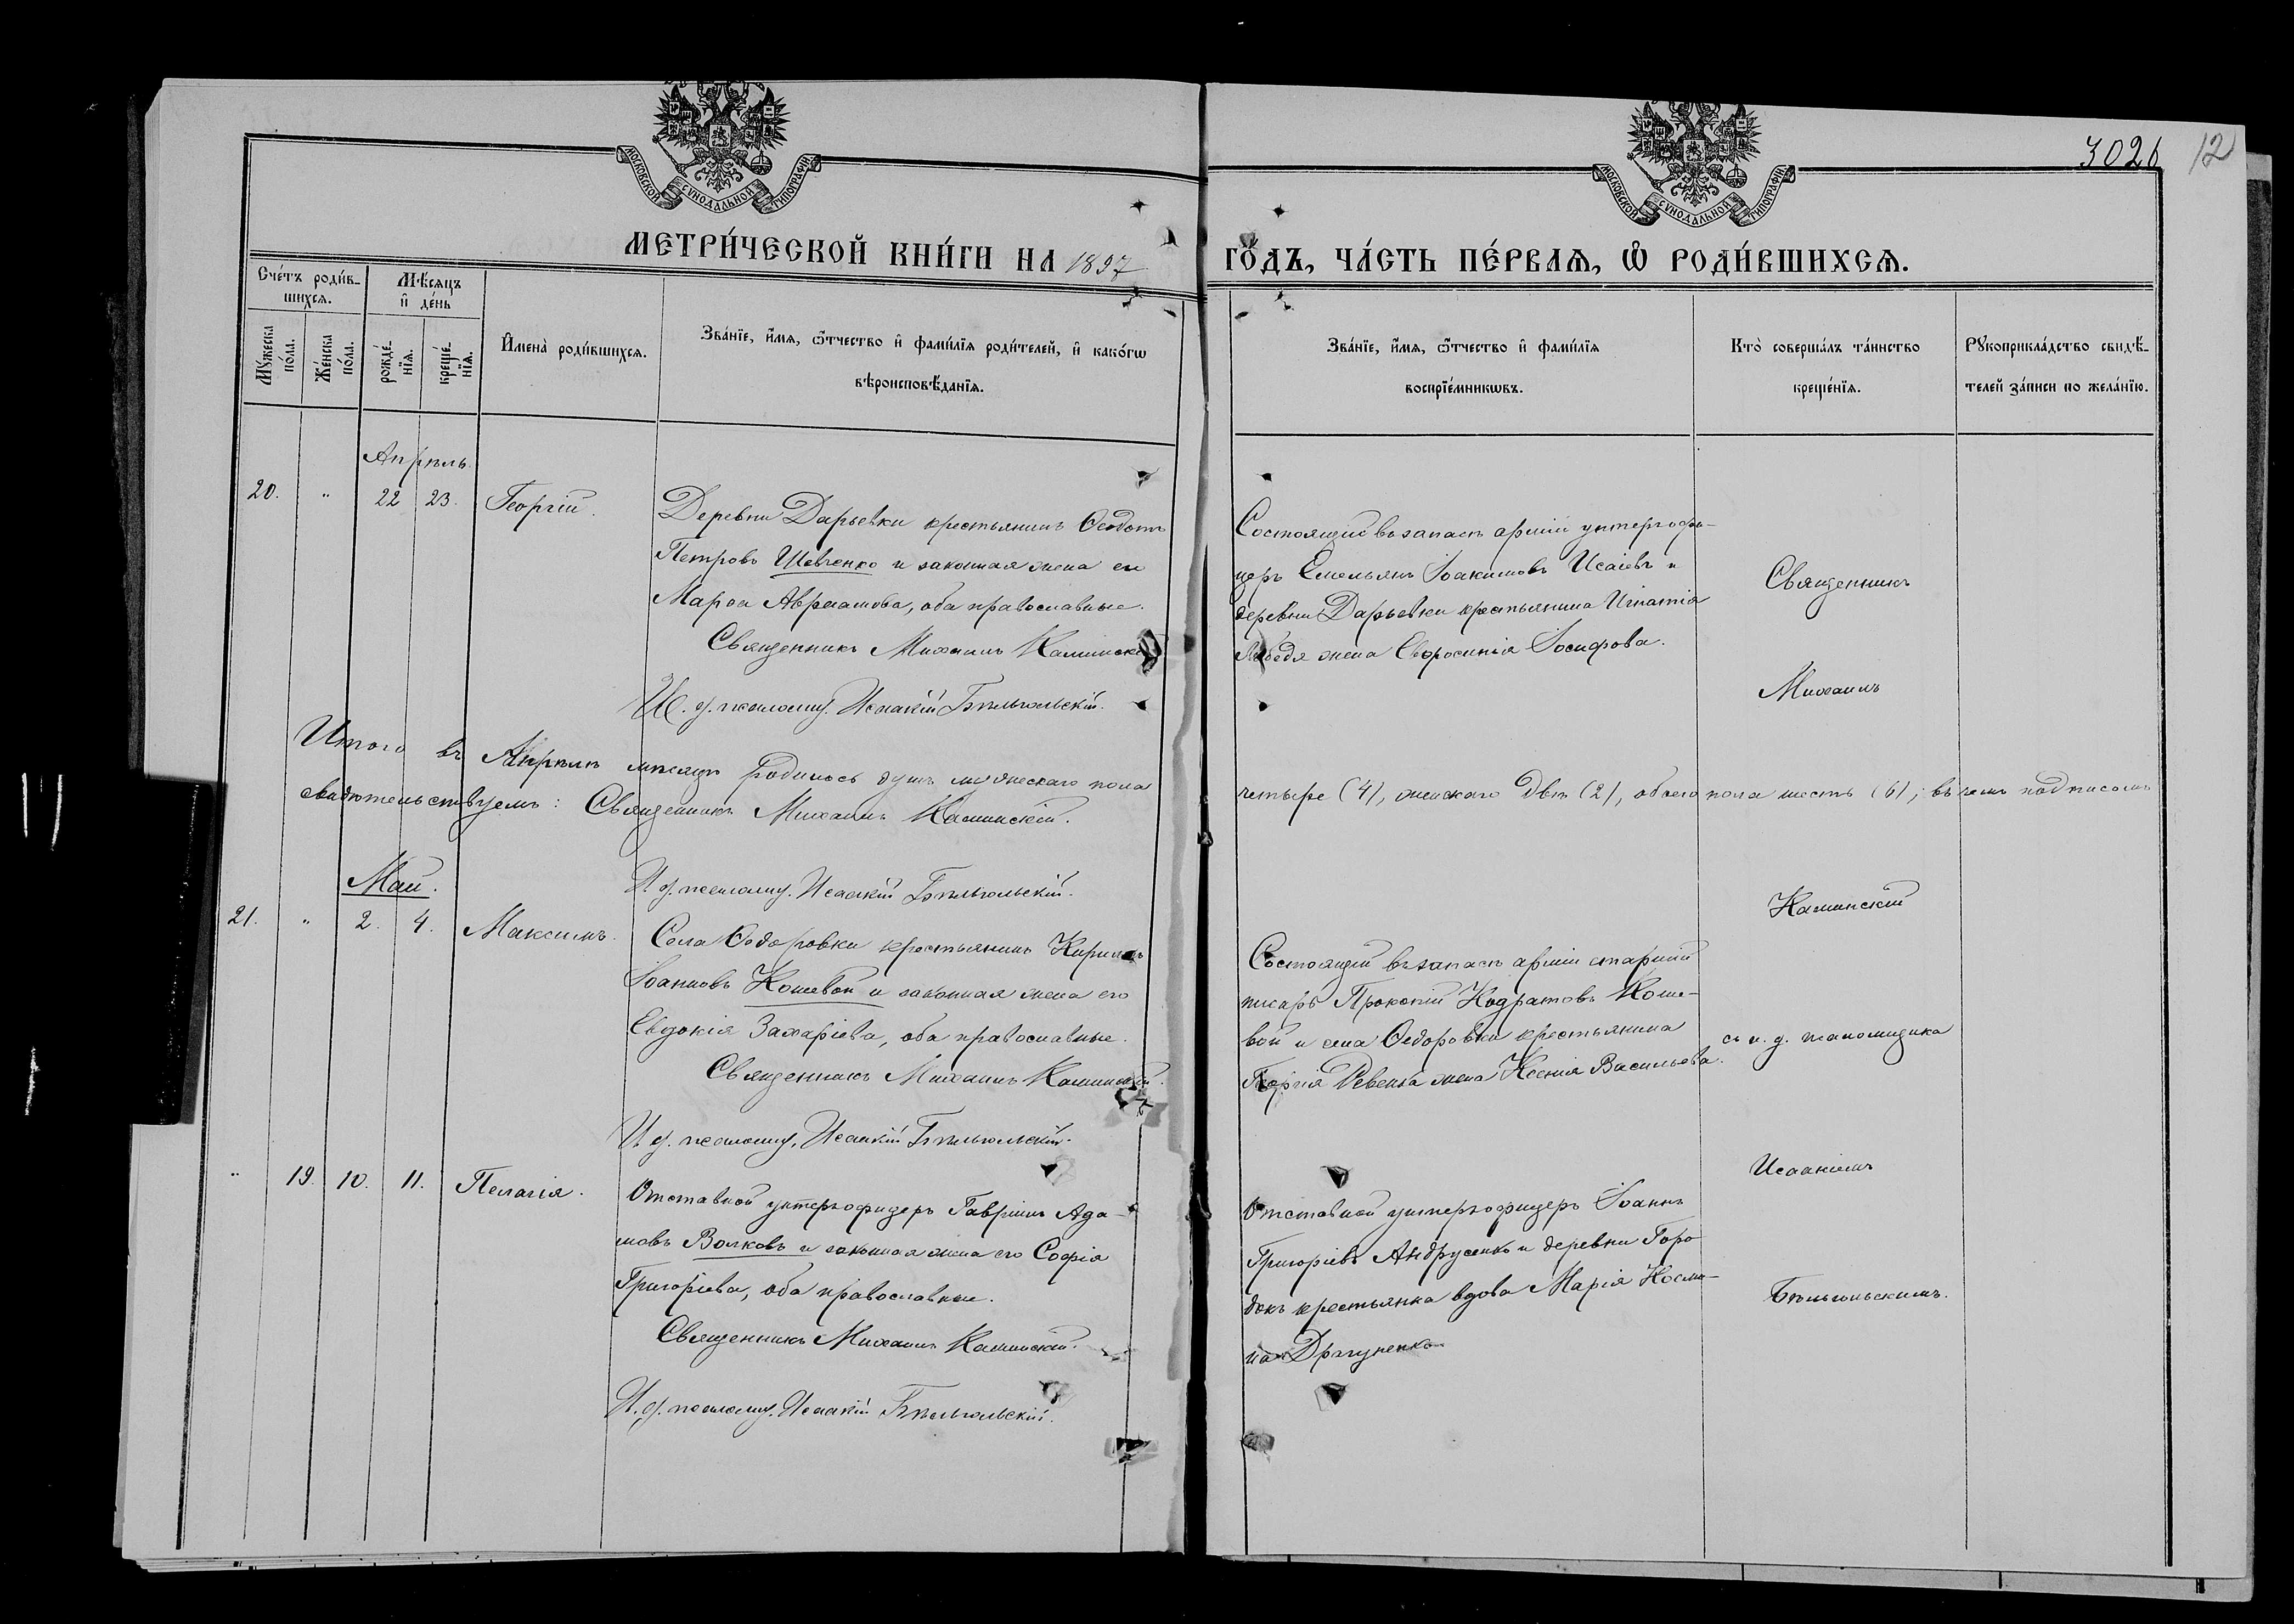 МОСКОВСКОЙ СУНОДАЛЬНОЙ ТИПОГРАФІИ
МОСКОВСКОЙ СУНОДАЛЬНОЙ ТИПОГРАФІИ
302б 12
МЕТРИ́ЧЕСКОЙ КНИ́ГИ НА 1897 ГО́ДЪ, ЧА́СТЬ ПЕ́РВАѦ, Ѽ РОДИ́ВШИХСѦ.
Сче́тъ роди́в-
шихсѧ.
Мѣ́сѧцъ
и҆ де́нь
Мꙋжеска
по́ла.
Же́нска
по́ла.
рожде́-
нїѧ.
креще́-
нїѧ.
И҆мена̀ роди́вшихсѧ.
Зва́нїе, и҆́мѧ, ѻ҆́тчество и҆ фами́лїѧ роди́телей, и҆ како́гѡ
вѣроисповѣ́данїѧ.
Зва́нїе, и҆́мѧ, ѻ҆́тчество и҆ фами́лїѧ
воспрїе́мникѡвъ.
Кто̀ соверша́лъ та́инство
креще́нїѧ.
Рꙋкоприкла́дство свидѣ́-
телей за́писи по жела́нїю.
Апрѣль.
20. " 22 23. Георгій.
Деревни Дарьевки крестьянинъ Ѳеодотъ
Петровъ Шевченко и законная жена его
Марѳа Авраамова, оба православные.
Священникъ Михаилъ Каминскій
И. д. псаломщ. Исаакій Бѣльгольскій.
Состоящій въ запасѣ арміи унтеръ-офи-
церъ Емельянъ Іоакимовъ Исаіевъ и
деревни Дарьевки крестьянина Игнатія
Лебедя жена Евфросинія Іосифова.
Священникъ
Михаилъ
Итого въ Апрѣлѣ мѣсяцѣ родилось душъ мужескаго пола четыре (4), женскаго двѣ (2), обоего пола шесть (6); въ чемъ подписомъ
свидѣтельствуемъ: Священникъ Михаилъ Каминскій.
И. д. псаломщ. Исаакій Бѣльгольскій.
Каминскій
Май.
21. " 2. 4. Максимъ.
Села Ѳедоровки крестьянинъ Кириллъ
Іоанновъ Кошевой и законная жена его
Евдокія Захаріева, оба православные.
Священникъ Михаилъ Каминскій.
И. д. псаломщ. Исаакій Бѣльгольскій.
Состоящій въ запасѣ арміи старшій
писарь Прокопій Кодратовъ Коше-
вой и села Ѳедоровки крестьянина
Георгія Ревенка жена Ксенія Васильева.
съ и. д. псаломщика
Исаакіемъ
" 19. 10. 11. Пелагія.
Отставной унтеръ-офицеръ Гавріилъ Ада-
мовъ Волковъ и законная жена его Софія
Григоріева, оба православные.
Священникъ Михаилъ Каминскій.
И. д. псаломщ. Исаакій Бѣльгольскій.
Отставной унтеръ-офицеръ Іоаннъ
Григоріевъ Андрусенко и деревни Горо-
докъ крестьянка вдова Марія Косми-
на
Бѣльгольскимъ.